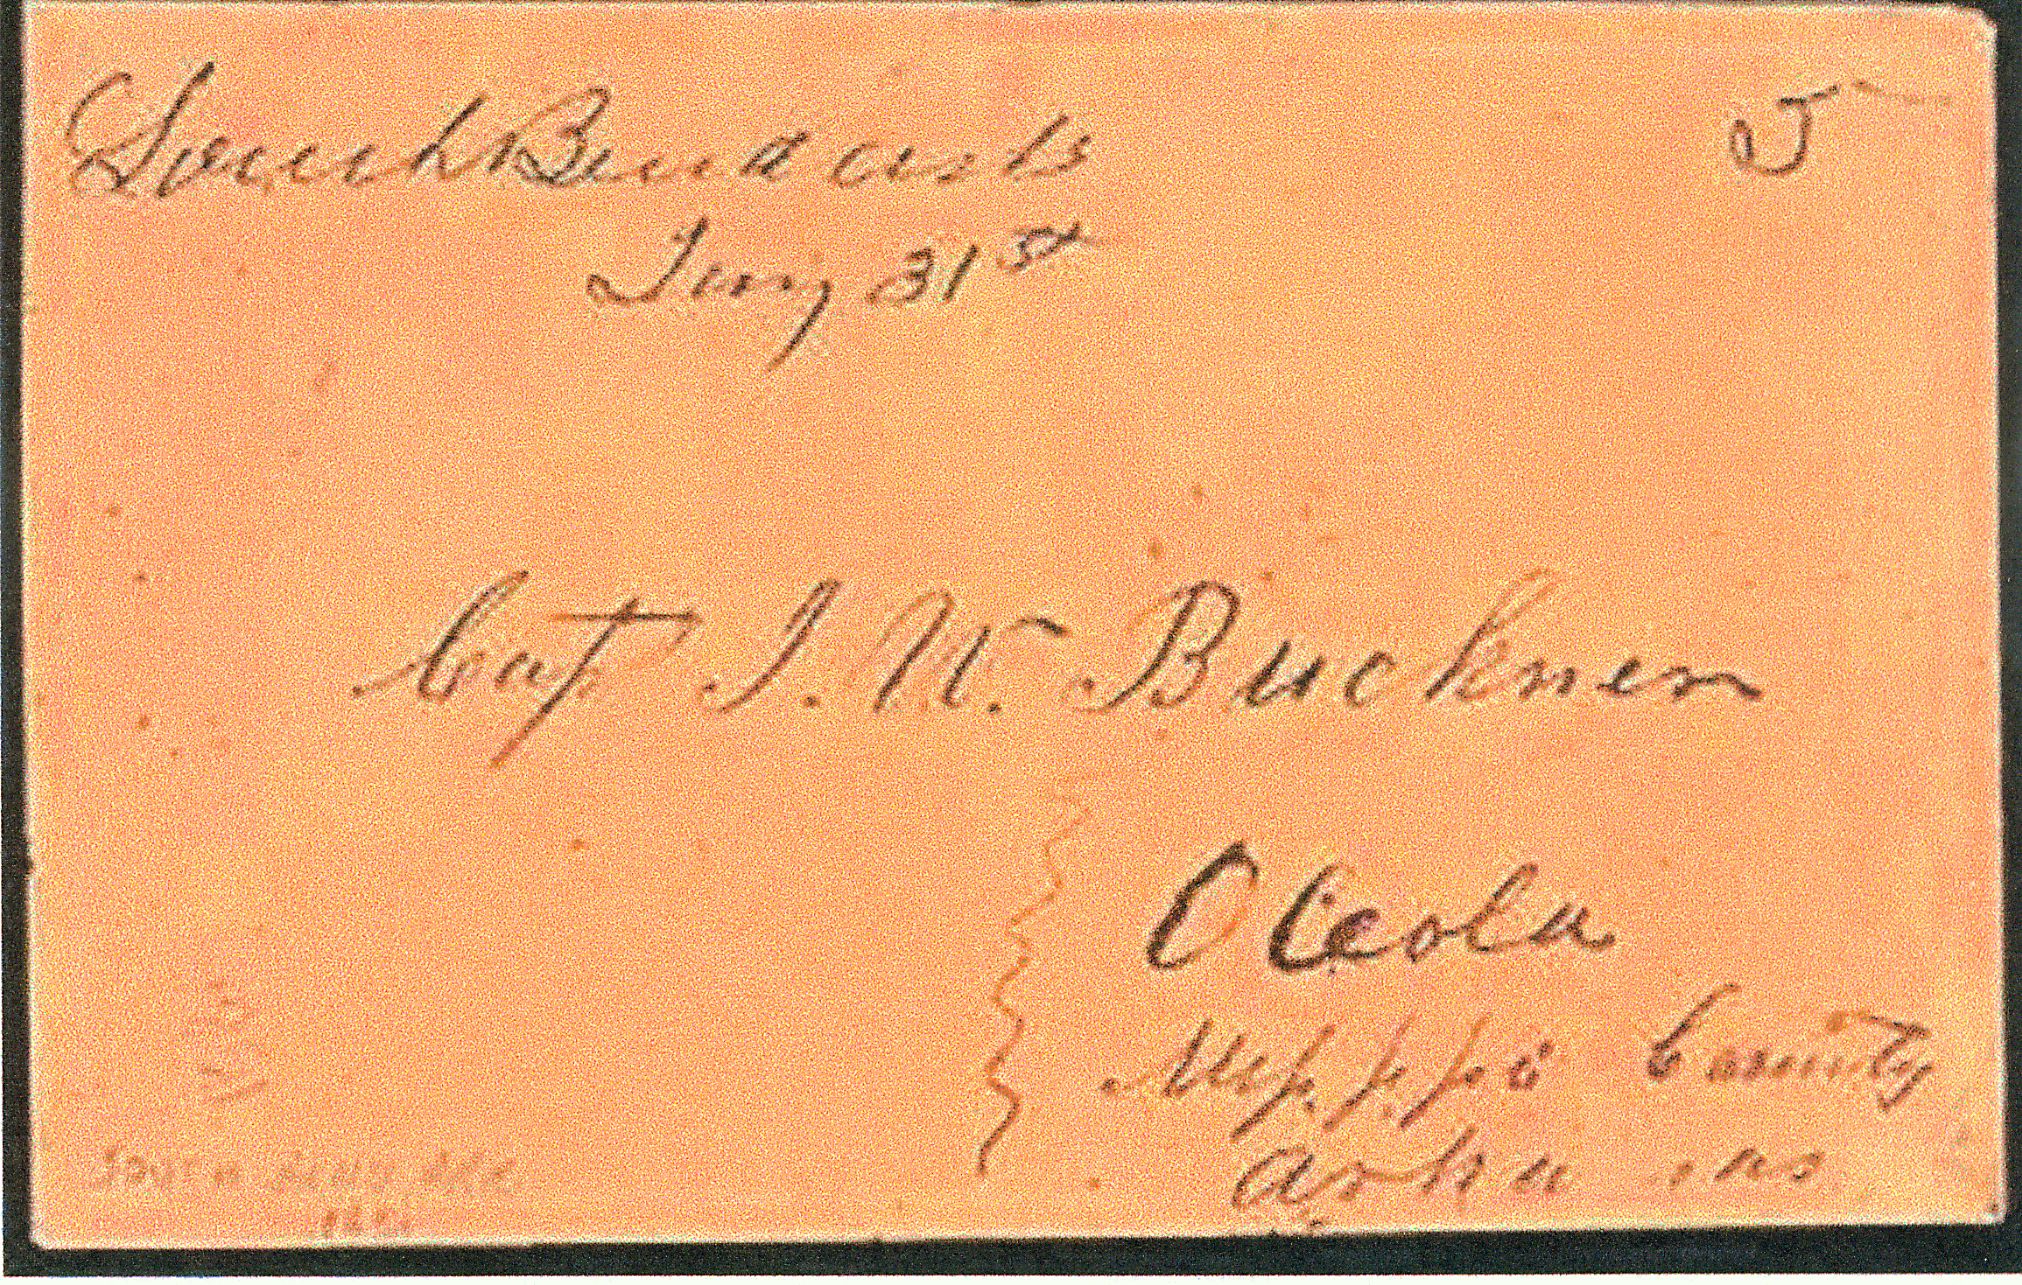 South Bend Arks 5
Jany 31st
Capt J. W. Buckner
Oceola
Missppi County
Arkansas
South Bend, Ark